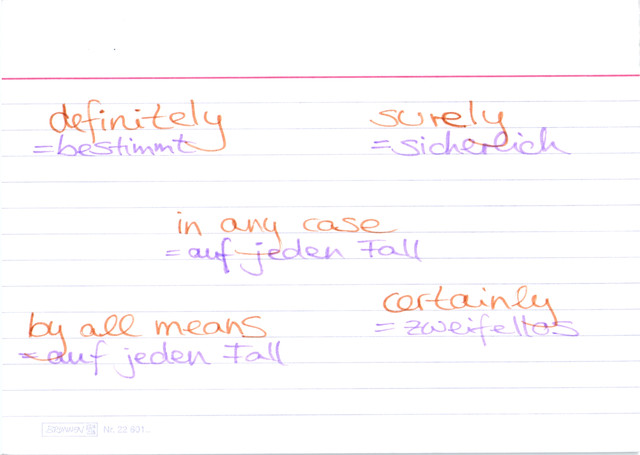 definitely surely
=bestimmt =sicherlich
in any case
=auf jeden Fall
by all means certainly
=auf jeden Fall =zweifellos
BRUNNEN Nr. 22 601